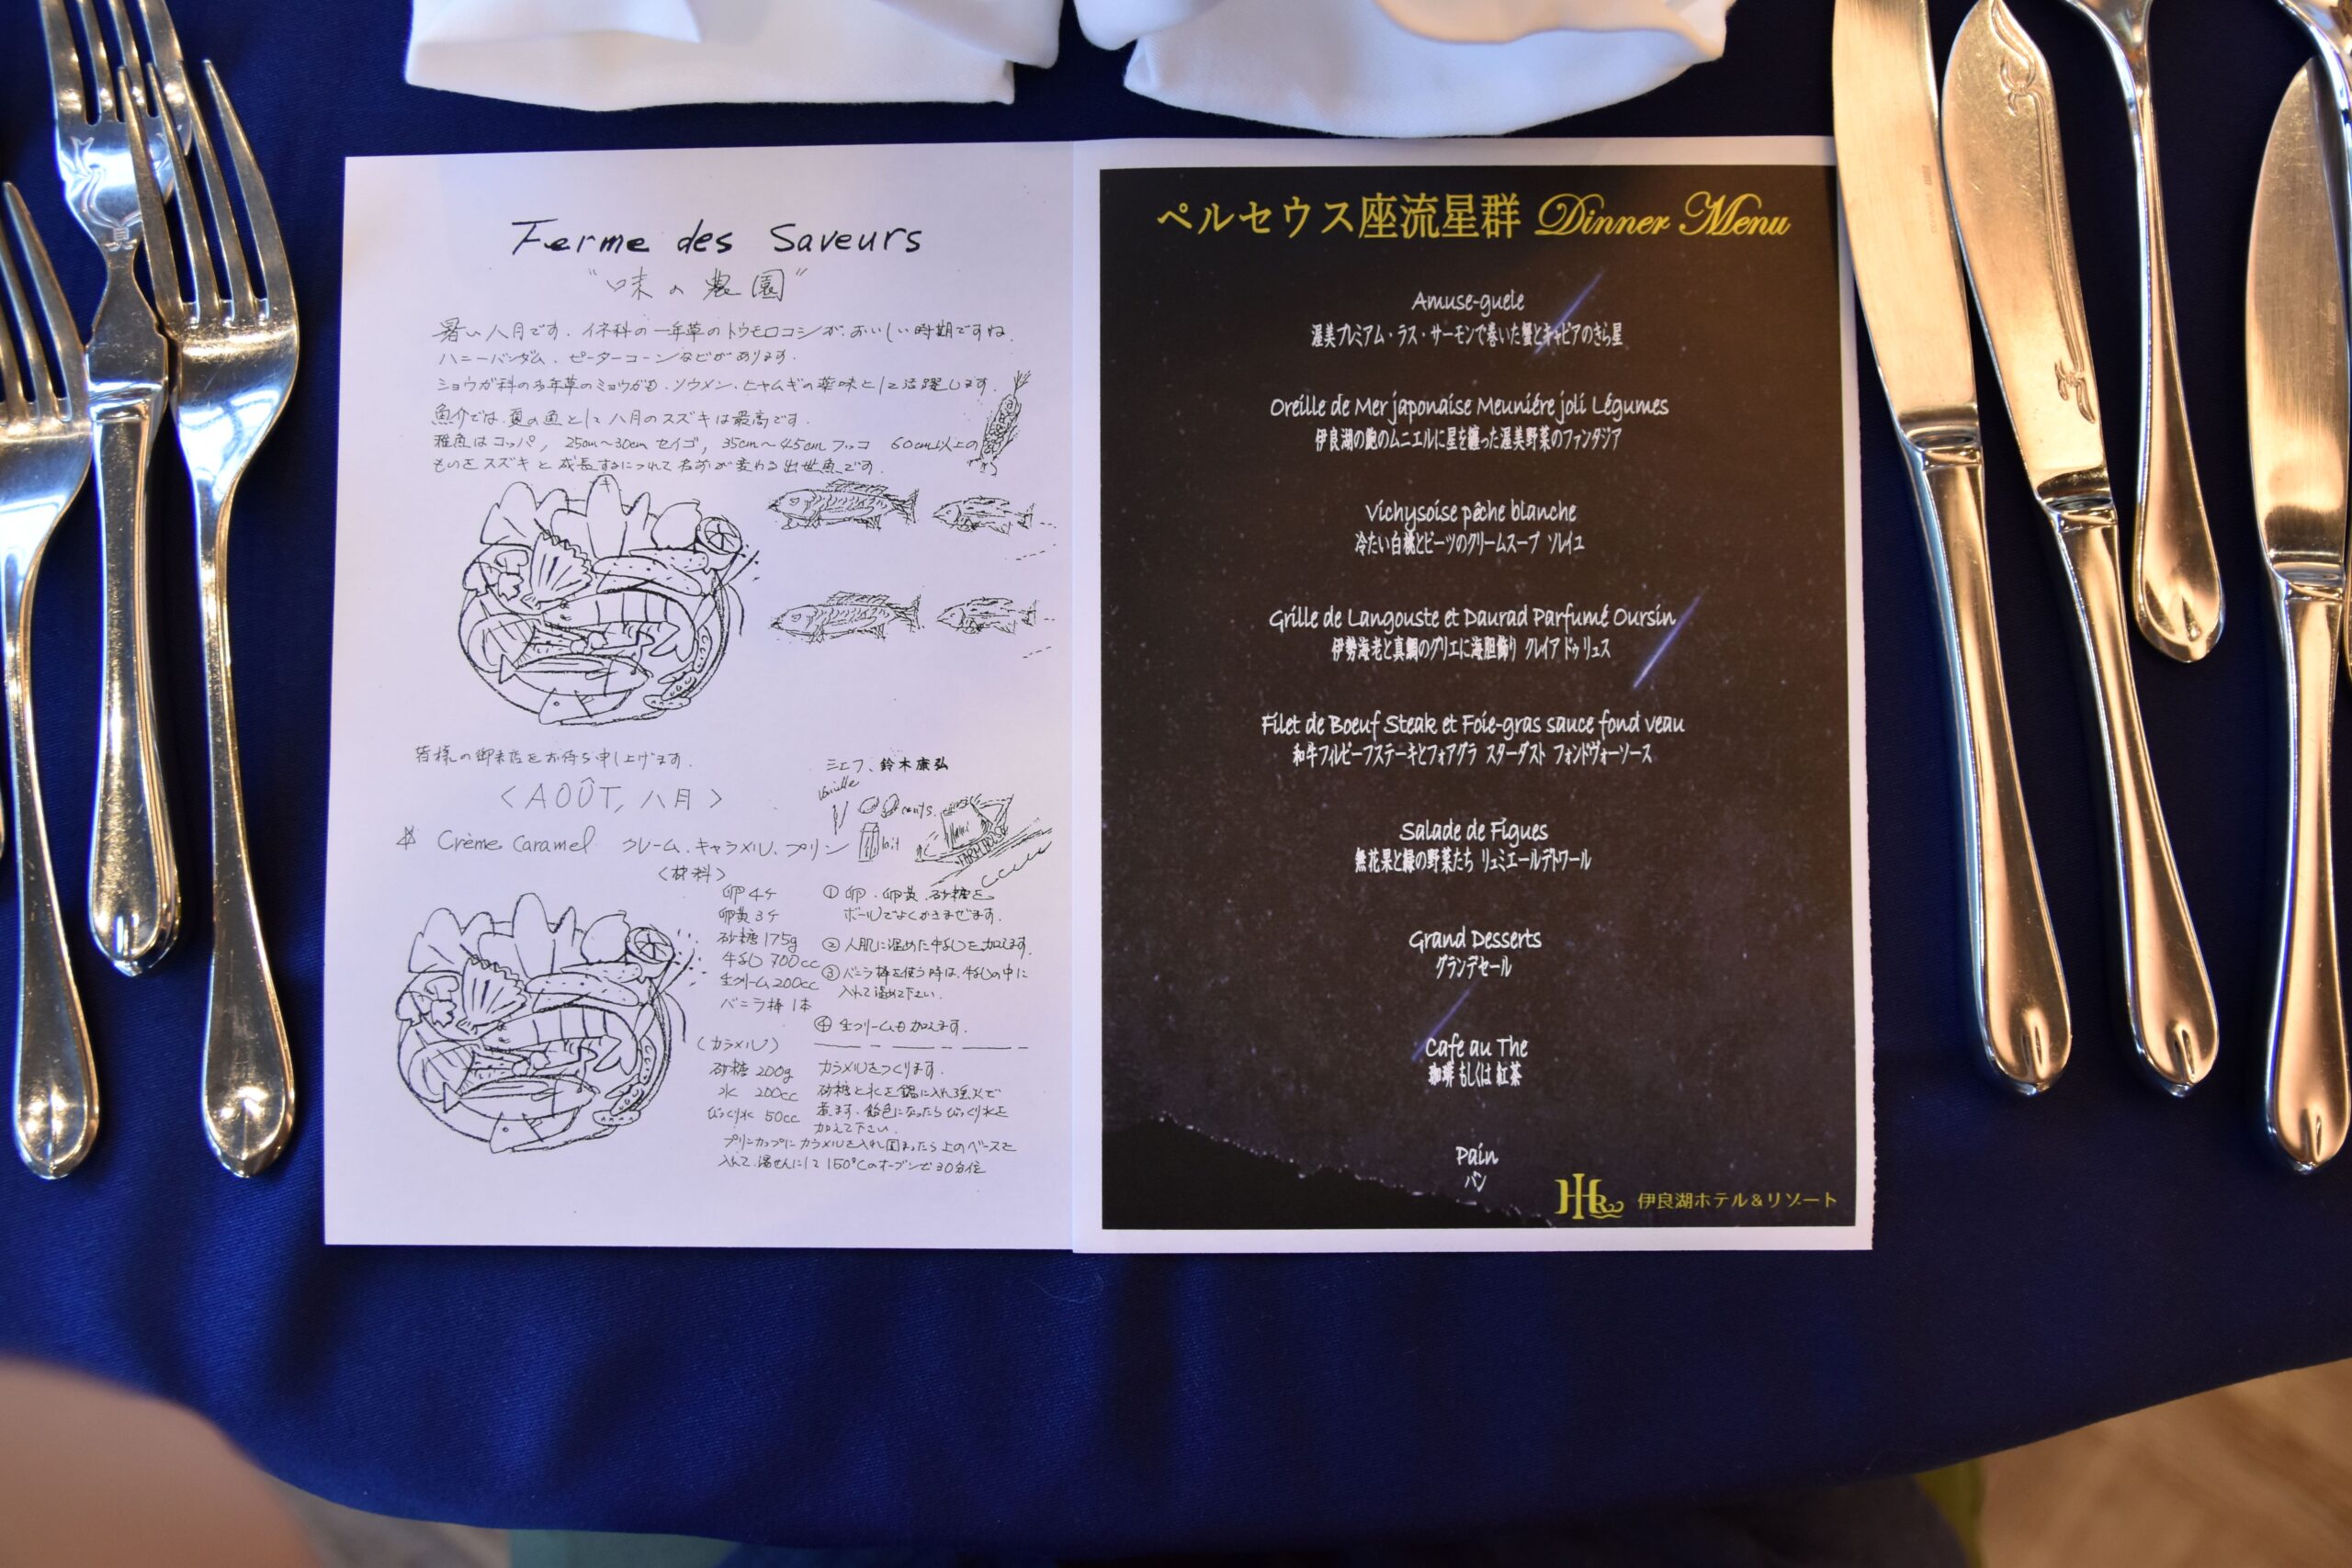 Ferme des Saveurs
"味の農園"
暑い八月です。イネ科の一年草のトウモロコシが、おいしい時期ですね。
ハニーバンダム、ピーターコーンなどがあります。
ショウガ科の多年草のミョウガも、ソウメン、ヒヤムギの薬味として活躍します。
魚介では、夏の魚として八月のスズキは最高です。
稚魚はコッパ, 25cm〜30cm セイゴ, 35cm〜45cm フッコ 60cm以上の
ものをスズキと成長するにつれて名前が変わる出世魚です。
皆様の御来店をお待ち申し上げます。
シェフ、鈴木康弘
〈AOÛT, 八月〉
Vanille
lait
FARM HOUSE
☆ Crème Caramel クレーム、キャラメル、プリン
〈材料〉
卵 4ケ
卵黄 3ケ
砂糖 175g
牛乳 700cc
生クリーム 200cc
バニラ棒 1本
① 卵、卵黄、砂糖を
ボールでよくかきまぜます。
② 人肌に温めた牛乳を加えます。
③ バニラ棒を使う時は、牛乳の中に
入れて温めて下さい。
④ 生クリームも加えます。
(カラメル)
砂糖 200g
水 200cc
びっくり水 50cc
カラメルをつくります。
砂糖と水を鍋に入れ強火で
煮ます。飴色になったらびっくり水を
加えて下さい。
プリンカップにカラメルを入れ固まったら上のベースを
入れて、湯せんにして150℃のオーブンで30分位
ペルセウス座流星群 Dinner Menu
Amuse-guele
渥美プレミアム・ラス・サーモンで巻いた蟹とキャビアのきら星
Oreille de Mer japonaise Meuniére joli Légumes
伊良湖の鮑のムニエルに星を纏った渥美野菜のファンタジア
Vichysoise pêche blanche
冷たい白桃とビーツのクリームスープ ソレイユ
Grille de Langouste et Daurad Parfumé Oursin
伊勢海老と真鯛のグリエに海胆飾り クレイア ドゥ リュス
Filet de Boeuf Steak et Foie-gras sauce fond veau
和牛フィレビーフステーキとフォアグラ スターダスト フォンドヴォーソース
Salade de Figues
無花果と緑の野菜たち リュミエールデトワール
Grand Desserts
グランデセール
Cafe au The
珈琲 もしくは 紅茶
Pain
パン
IHR 伊良湖ホテル&リゾート